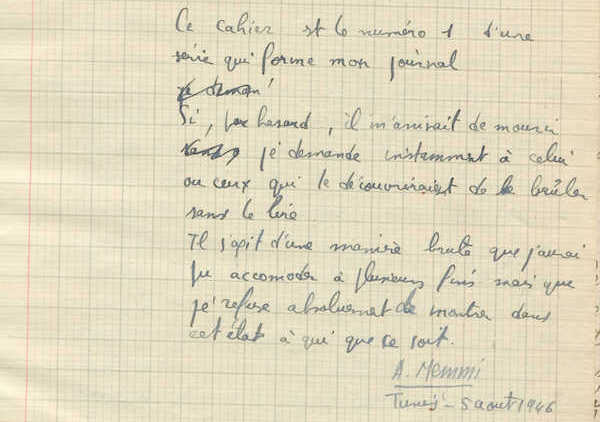 Ce cahier est le numéro 1 d'une
série qui forme mon journal
je deman
Si, par hasard, il m'arrivait de mourir
je demande instamment à celui
ou ceux qui le découvriraient de le brûler
sans le lire
Il s'agit d'une manière brute que j'aurai
pu accomoder à plusieurs fins mais que
je refuse absolument de montrer dans
cet état à qui que ce soit.
A. Memmi
Tunis - 5 aout 1946